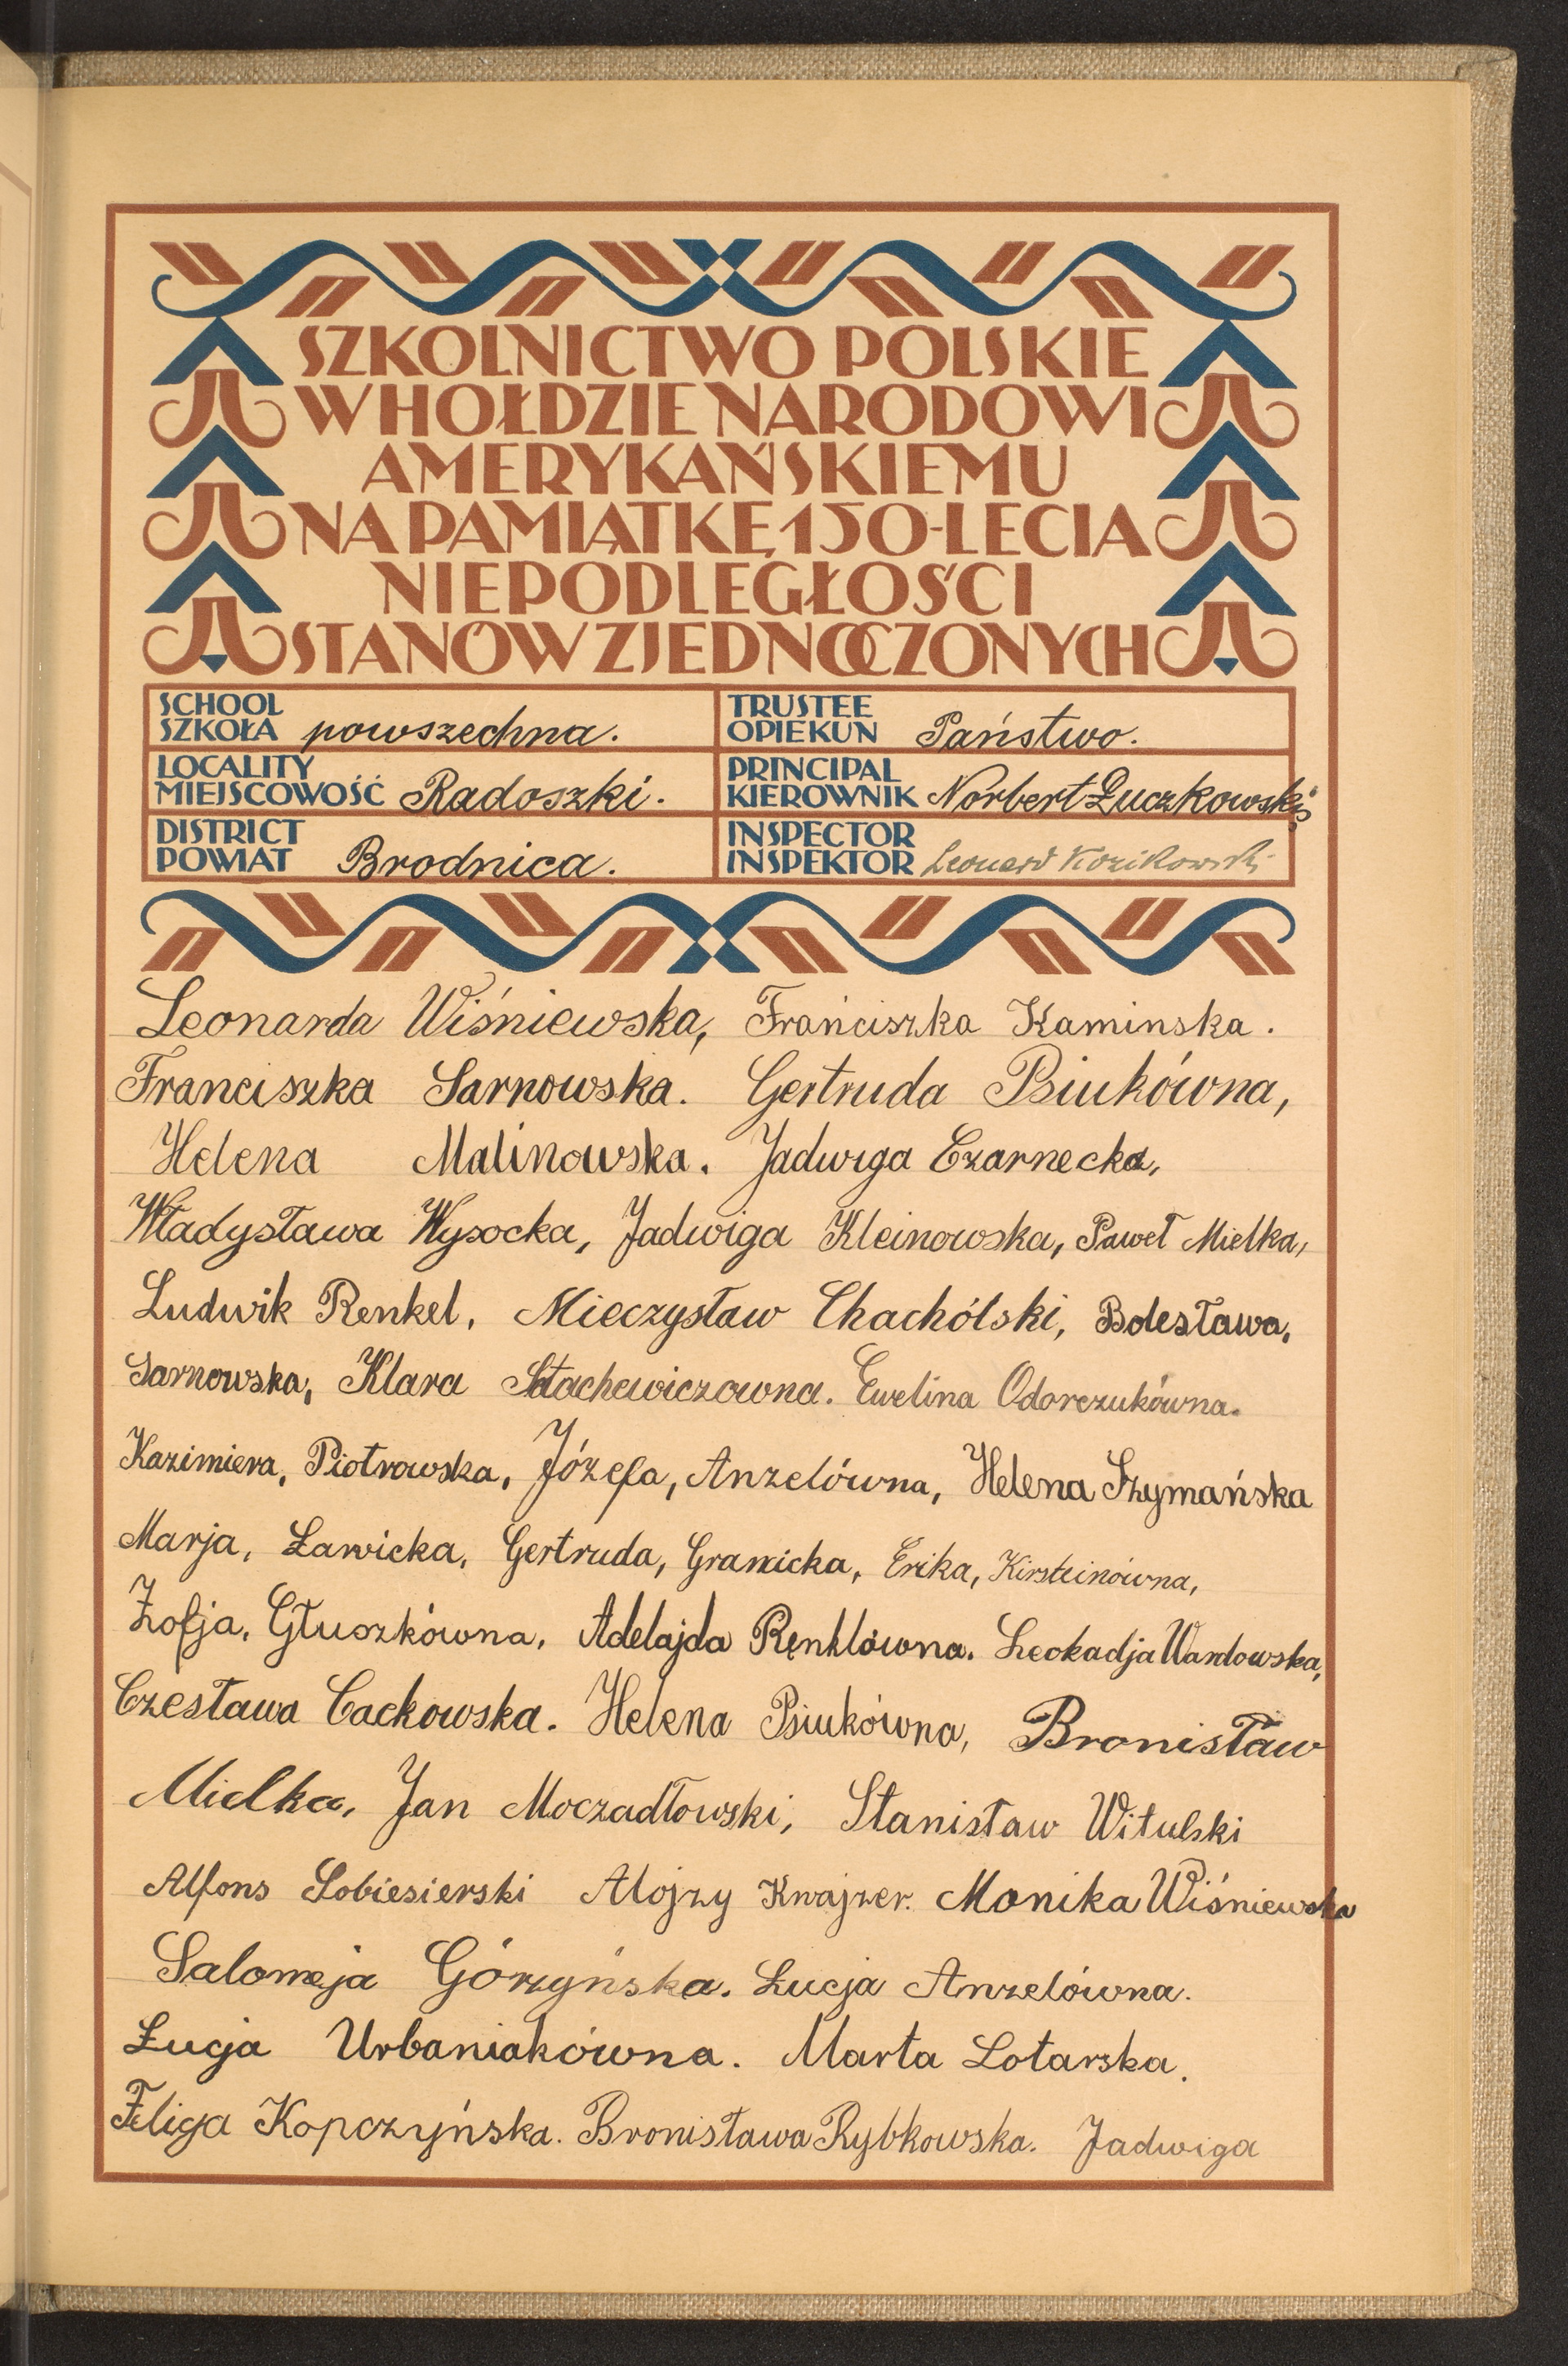 SZKOLNICTWO POLSKIE
W HOŁDZIE NARODOWI
AMERYKAŃSKIEMU
NA PAMIĄTKĘ 150-LECIA
NIEPODLEGŁOŚCI
STANÓW ZJEDNOCZONYCH
SCHOOL
SZKOŁA powszechna.
TRUSTEE
OPIEKUN Państwo.
LOCALITY
MIEJSCOWOŚĆ Radoszki.
PRINCIPAL
KIEROWNIK Norbert Łuczkowski
DISTRICT
POWIAT Brodnica.
INSPECTOR
INSPEKTOR Leonard Kozikowski
Leonarda Wiśniewska, Frańciszka Kaminska.
Franciszka Sarnowska. Gertruda Psiukówna,
Helena Malinowska. Jadwiga Czarnecka,
Władysława Wysocka, Jadwiga Kleinowska, Paweł Mielka,
Ludwik Renkel, Mieczysław Chachólski, Bolesława,
Sarnowska, Klara Stachewiczowna. Ewelina Odorczukówna.
Kazimiera, Piotrowska, Józefa, Anzelówna, Helena Szymańska
Marja, Ławicka, Gertruda, Granicka, Erika, Kirsteinówna,
Zofja, Głuszkówna, Adelajda Renklówna. Leokadja Wandowska,
Czesława Cackowska. Helena Psiukówna, Bronisław
Mielka, Jan Moczadłowski, Stanisław Witulski
Alfons Sobiesierski Alojzy Knajzer. Monika Wiśniewska
Salomeja Górzyńska. Łucja Anzelówna.
Łucja Urbaniakówna. Marta Lotarska.
Feliga Kopczyńska. Bronisława Rybkowska. Jadwiga